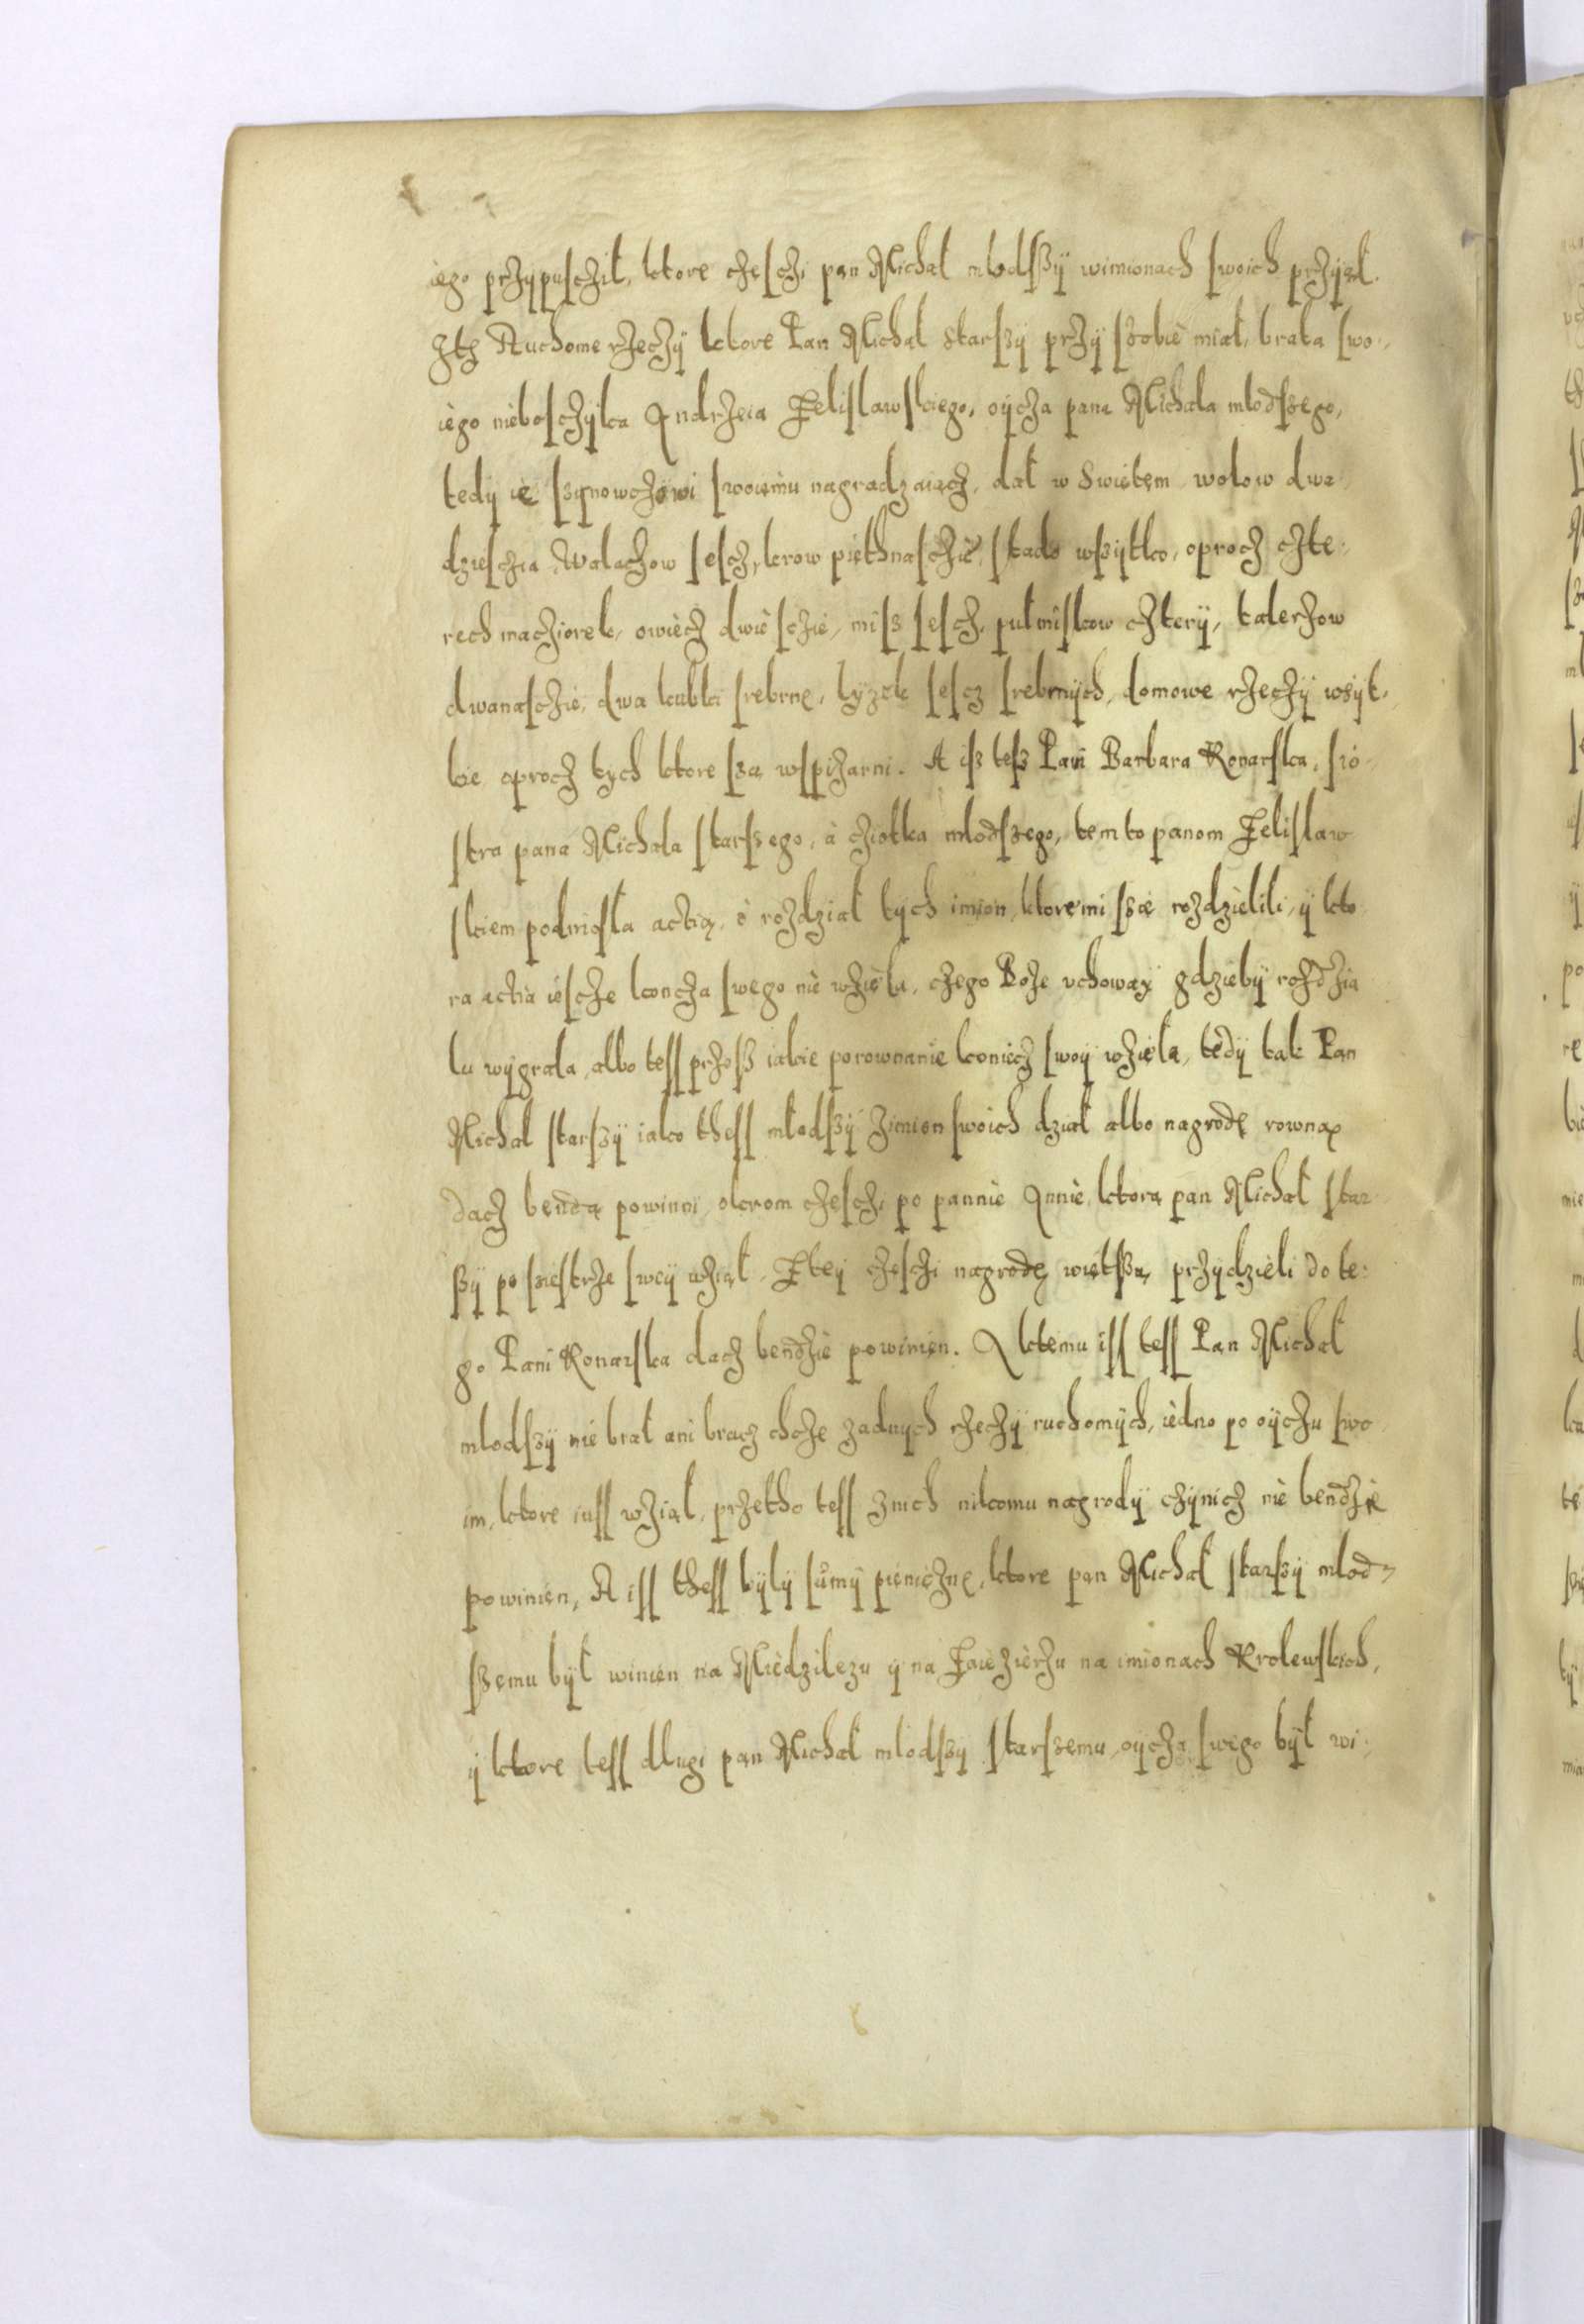 iego przÿpusczil, ktore czesczi pan Michał mlodszÿ wimionach swoich prziął.
Ztą Ruchome rzeczÿ ktore Pan Michał starszÿ przÿ szobie miał, brata swo-
iego nieboszczÿka Andrzeia Zelislawskiego, oÿcza pana Michala mlodszego,
tedÿ ie szÿnowczowi swoiemu nagradzaiącz, dał w Swiętem wolow dwa
dziesczia Walachow sescz, krow piethnasczie, stado wszÿtko, oprocz czte-
rech macziorek, owiecz dwie sczie, mis sescz, pulmiskow czterÿ, talerzow
dwanasczie, dwa kubki srebrne, lÿzek sescz srebrnÿch, domowe rzeczÿ wsÿt-
kie oprocz tych ktore są wspiżarni. A isz tesz Pani Barbara Konarska, sio-
stra pana Michala starszego, à cziotka mlodszego, tem to panom Zelislaw
skiem podniosla actią, o rozdział tych imion, ktoremi szie rozdzielili, ÿ kto
ra actia iescze koncza swego nie wzięla, czego Boze uchowaÿ gdziebÿ rozdzia
lu wÿgrala, albo tess przess iakie porownanie koniecz swoÿ wzięla, tedÿ tak Pan
Michał starszÿ iako thess mlodszÿ zimion swoich dział albo nagrodę rowną
dacz bendą powinni, okrom czesczi po pannie Annie, ktorą pan Michał star
szÿ po siestrze sweÿ wziął. Zteÿ czesczi nagrodę więtszą przydzieli do te-
go Pani Konarska dacz bendzie powinien. A ktemu iss tess Pan Michał
mlodszÿ nie brał ani bracz chcze zadnych rzeczÿ ruchomÿch, iedno po oÿczu swo
im, ktore iuss wziął, przetho tess znich nikomu nagrodÿ czÿnicz nie bendzie
powinien, A iss thess bÿlÿ sumÿ pieniężne, ktore pan Michał starszÿ mlod-
szemu bÿł winien na Miedzilezu ÿ na Zaiezierzu na imionach Krolewskich,
ÿ ktore tess dlugi pan Michał mlodszÿ starszemu oÿcza swego bÿł wi-